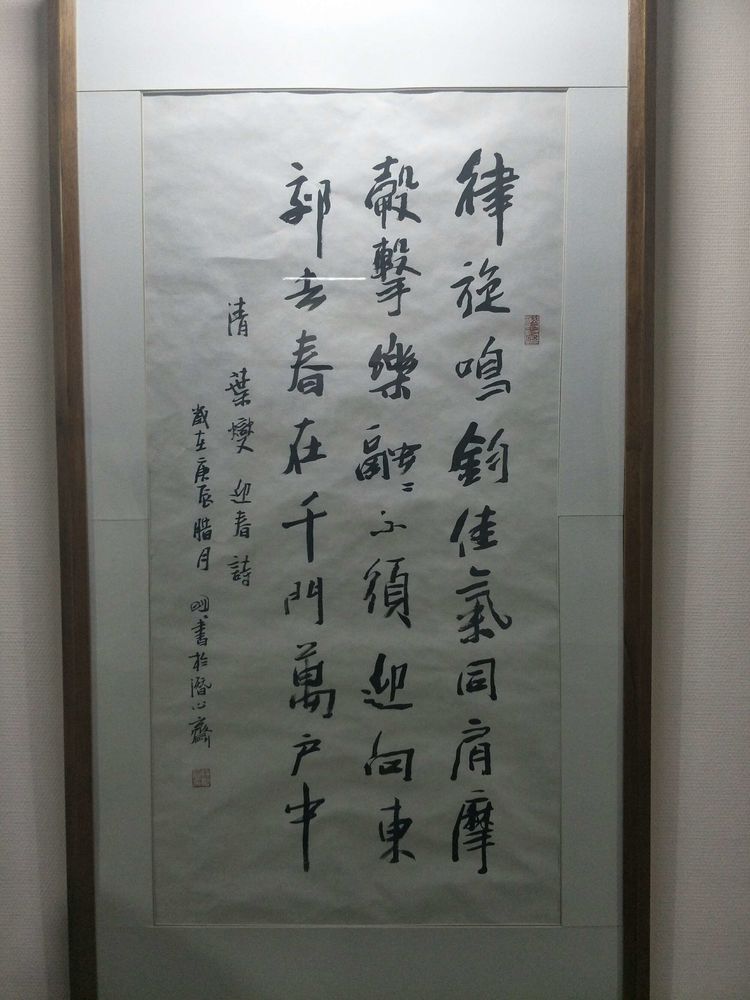 律旋鳴鈞佳氣同肩摩
轂擊樂融々不須迎向東
郊去春在千門萬戶中
清葉燮迎春詩
歲在庚辰腊月明書於潛心齋